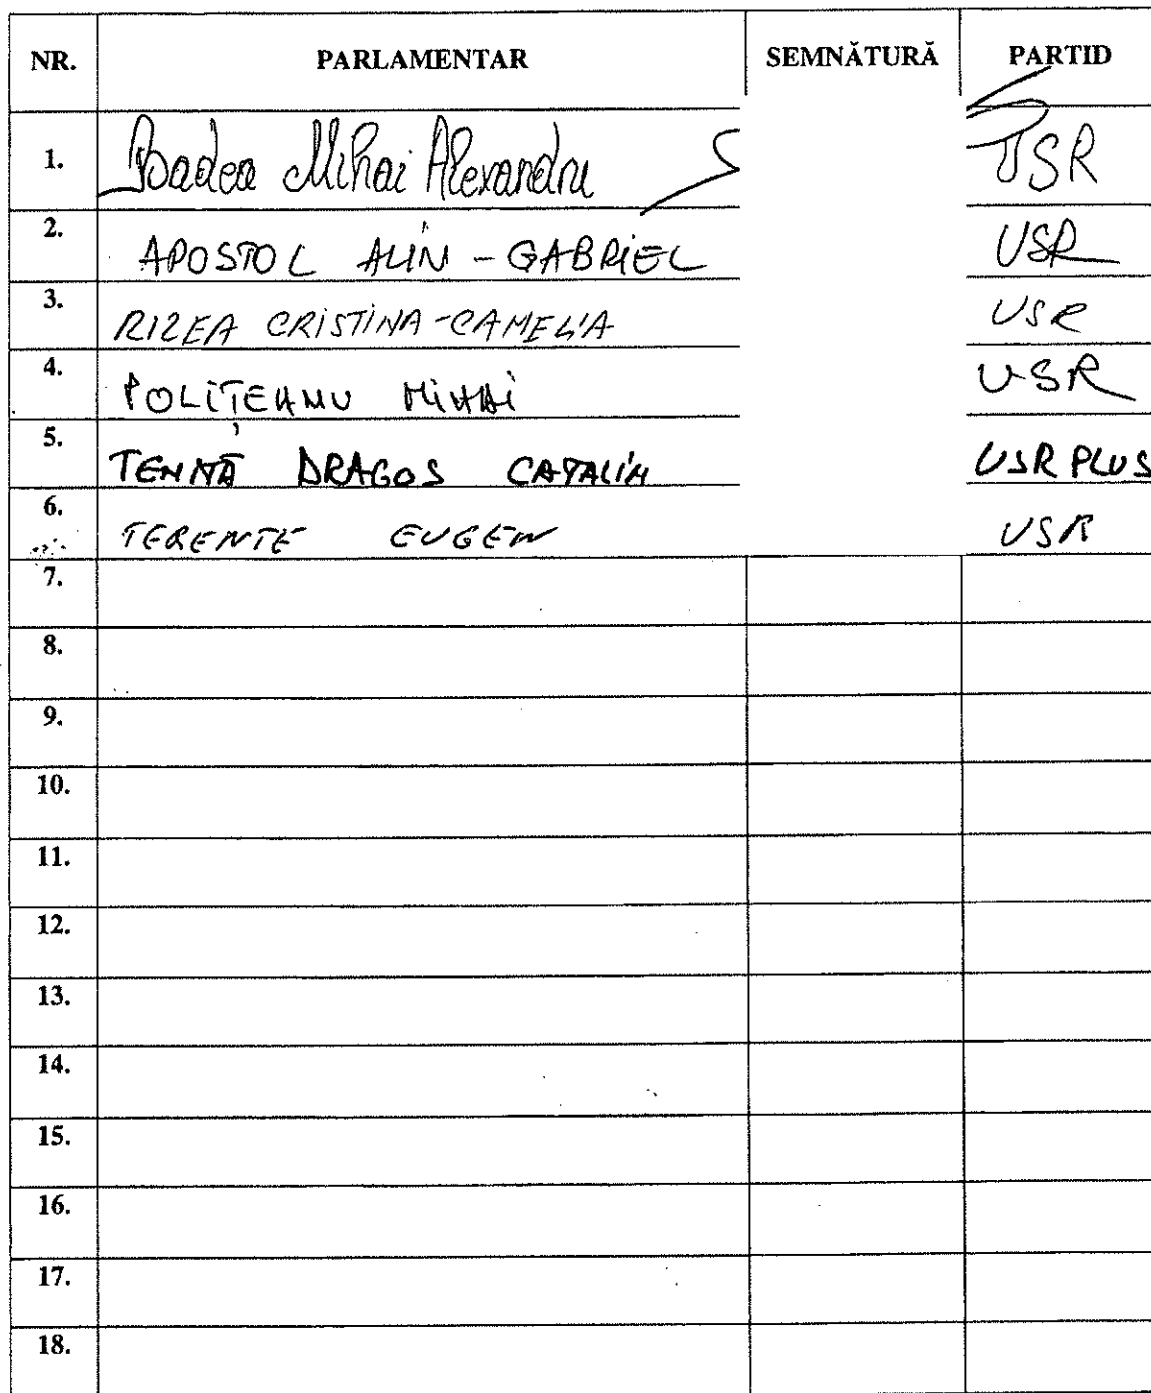 NR. PARLAMENTAR SEMNĂTURĂ PARTID
1. Badea Mihai Alexandru USR
2. APOSTOL ALIN - GABRIEL USR
3. RIZEA CRISTINA-CAMELIA USR
4. POLIȚEANU MIHAI USR
5. TENNĂ DRAGOS CATALIN USR PLUS
6. TERENTE EUGEN USR
7.
8.
9.
10.
11.
12.
13.
14.
15.
16.
17.
18.